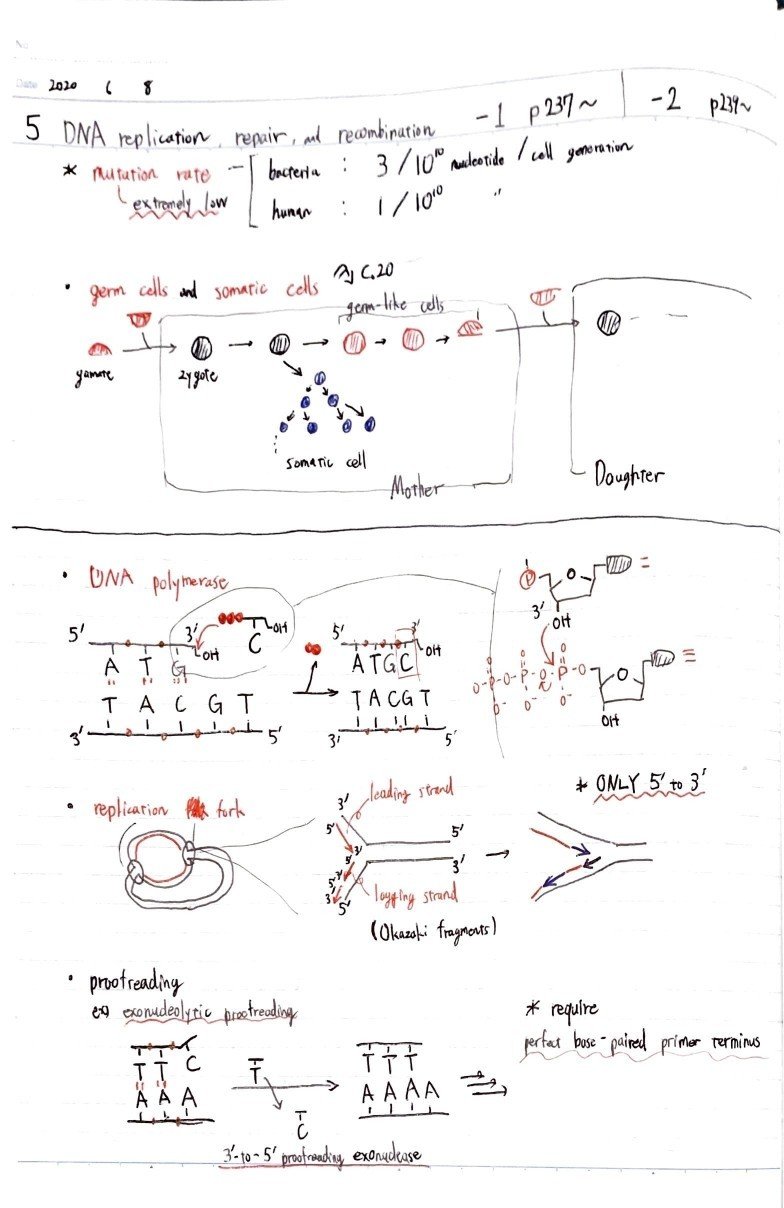 No.
Date 2020 6 8
5 DNA replication, repair, and recombination -1 p237~ | -2 p239~
* mutation rate
extremely low
bacteria : 3/10¹⁰ nucleotide / cell generation
human : 1/10¹⁰ "
• germ cells and somatic cells C.20
germ-like cells
gamate
zygote
somatic cell
Mother
Doughter
• DNA polymerase
5' 3'
OH
A T G
T A C G T
3' 5'
C OH
5' 3'
OH
A T G C
T A C G T
3' 5'
P O
3' OH
O O O
O-P-O-P-O-P-O O
O- O- O-
OH
• replication fork
3' leading strand
5' 5'
3'
5' 3'
3'
5'
3'
5' lagging strand
(Okazaki fragments)
* ONLY 5' to 3'
• proofreading
ex) exonucleolytic proofreading
T T C
A A A
T
C
T T T
A A A A
3'-to-5' proofreading exonuclease
* require
perfect base-paired primer terminus